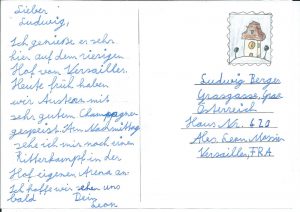 Lieber
Ludwig,
Ich genieße er sehr
hier auf dem riesigen
Hof von Versailles.
Heute früh haben
wir Austern mit
sehr guten Champagner
gespeist. Am Nachmittag
sehe ich mir noch einen
Ritterkampf in der
Hof eigenen Arena an.
Ich hoffe wir sehen uns
bald Dein
Leon
Ludwig Berger
Grasgasse, Graz
Österreich
Haus Nr. 620
Abs. Leon Messin
Versailles, FRA